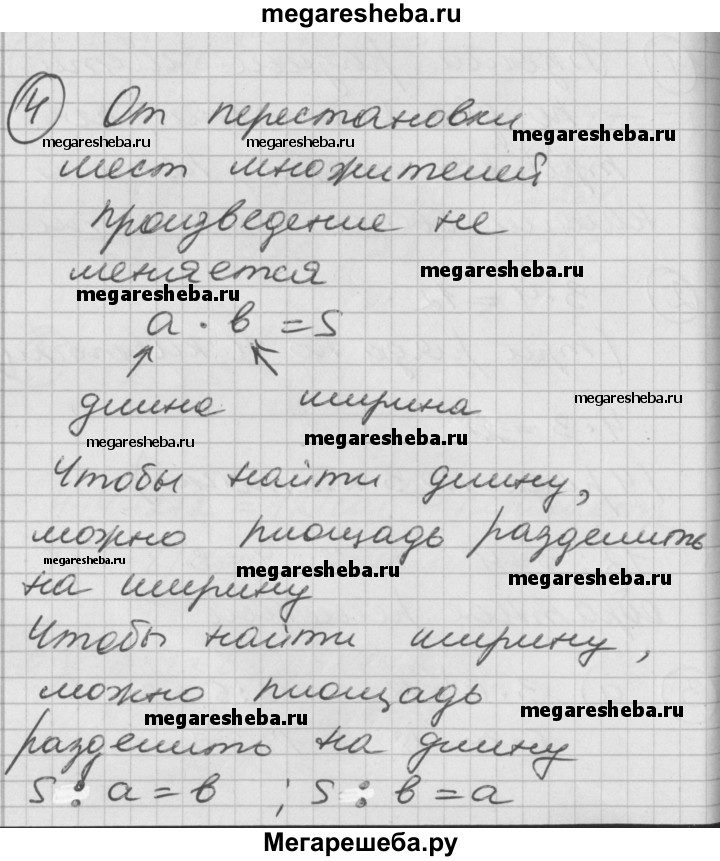 megaresheba.ru
4 От перестановки
megaresheba.ru megaresheba.ru megaresheba.ru
мест множителей
произведение не
меняется megaresheba.ru
megaresheba.ru
a · в = S
длина ширина megaresheba.ru
megaresheba.ru megaresheba.ru
Чтобы найти длину,
можно площадь разделить
megaresheba.ru megaresheba.ru megaresheba.ru
на ширину
Чтобы найти ширину,
можно площадь
megaresheba.ru megaresheba.ru
разделить на длину
S : a = в ; S : в = a
Мегарешеба.ру